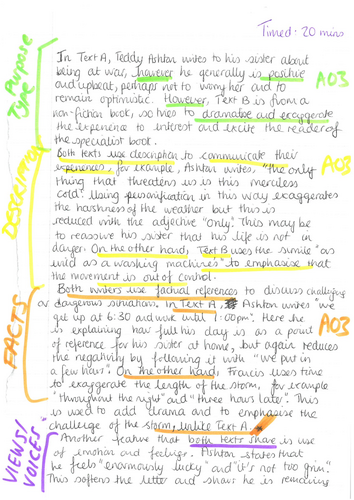 Timed: 20 mins
Purpose
Type
In Text A, Teddy Ashton writes to his sister about
being at war, however he generally is positive
and upbeat, perhaps not to worry her and to
remain optimistic. However, Text B is from a
non-fiction book, so tries to dramatise and exaggerate
the experience to interest and excite the reader of
the specialist book.
AO3
DESCRIPTION
Both texts use description to communicate their
experiences, for example, Ashton writes, "the only
thing that threatens us is this merciless
cold". Using personification in this way exaggerates
the harshness of the weather but this is
reduced with the adjective "only". This may be
to reassure his sister that his life is not in
danger. On the other hand, Text B uses the simile "as
wild as a washing machines" to emphasise that
the movement is out of control.
AO3
FACTS
Both writers use factual references to discuss challenging
or dangerous situations. In Text A, Ashton writes "we
get up at 6:30 and work until 1:00pm". Here he
is explaining how full his day is as a point
of reference for his sister at home, but again reduces
the negativity by following it with "we put in
a few hours". On the other hand, Francis uses time
to exaggerate the length of the storm, for example
"throughout the night" and "three hours later". This
is used to add drama and to emphasise the
challenge of the storm, unlike Text A.
AO3
VIEWS/
VOICES
Another feature that both texts share is use
of emotion and feelings. Ashton states that
he feels "enormously lucky" and "it's not too grim".
This softens the letter and shows he is remaining